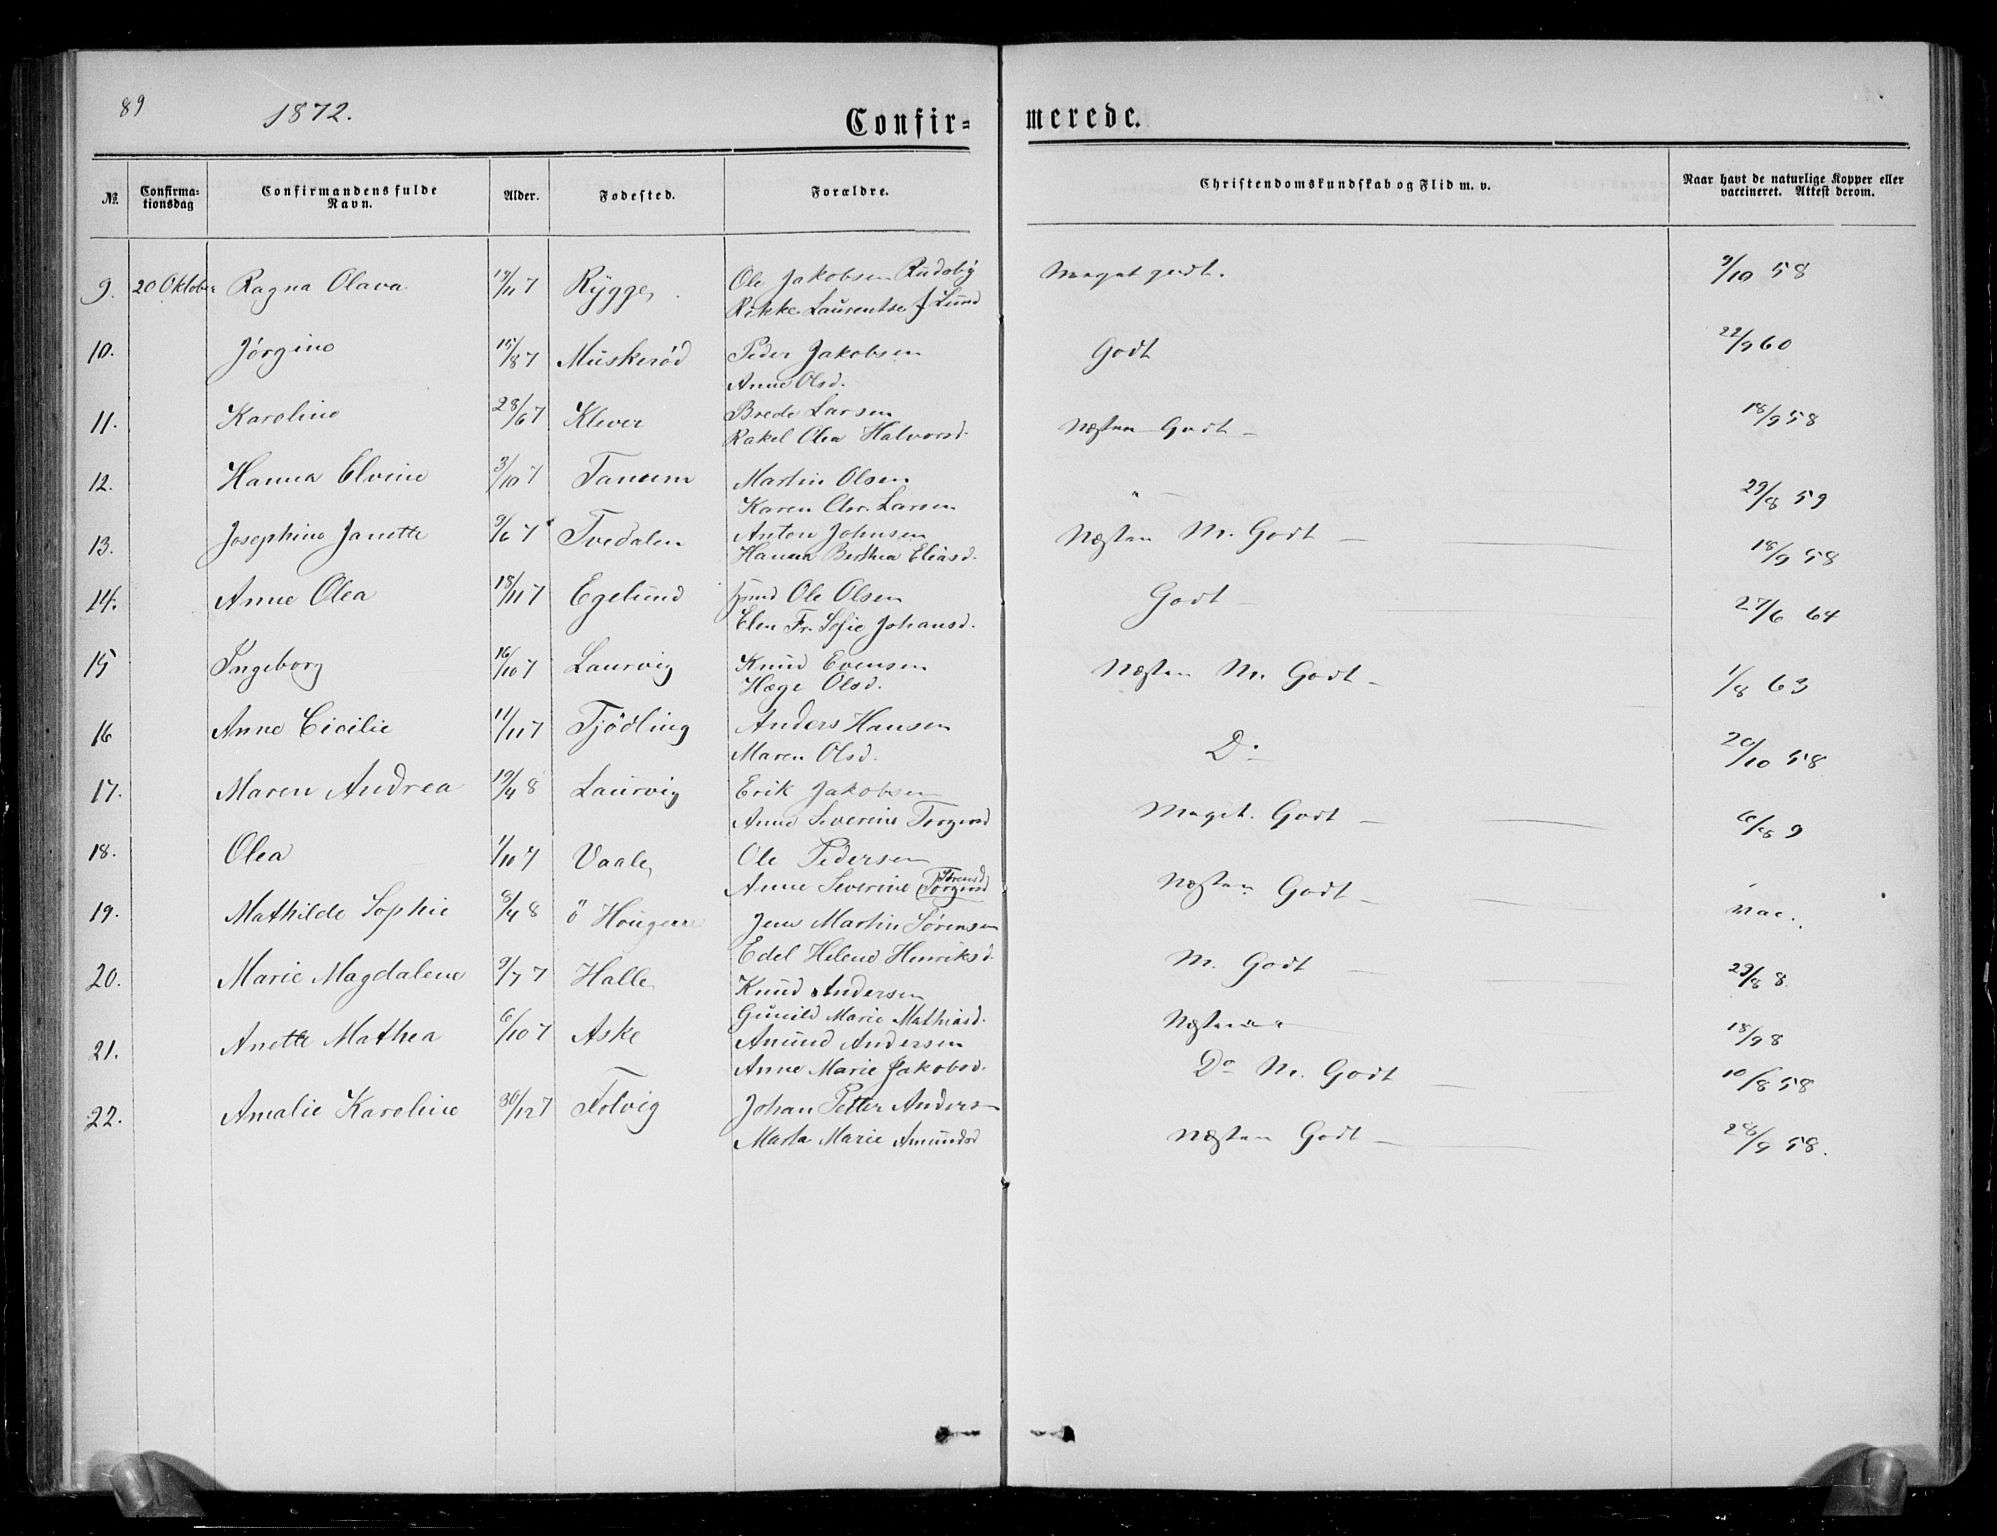 89
1872.
Confir- merede.
No. Confirma- tionsdag Confirmandens fulde Navn. Alder. Fodested. Forældre. Christendomskundskab og Flid m. v. Naar havt de naturlige Kopper eller vaccineret. Attest derom.
9. 20 Oktober Ragna Olava 17/11 7 Rygge Ole Jakobsen Rudsby Meget godt. 9/10 58
Rikke Laurentse f Lund
10. Jørgine 15/8 7 Muskerød Peder Jakobsen Godt 22/9 60
Anne Olsd.
11. Karoline 28/6 7 Klever Brede Larsen Næsten Godt - 18/9 58
Rakel Olea Halvorsd.
12. Hanna Elvine 3/10 7 Tanum Martin Olsen " 29/8 59
Karen Chr. Larsen
13. Josephine Janette 9/6 7 Tvedalen Anton Johnsen Næsten M. Godt - 18/9 58
Hanna Berthea Eliasd.
14. Anne Olea 18/11 7 Egelund Ole Olsen Godt - 27/6 64
Elen Fr. Sofie Johansd.
15 Ingeborg 16/10 7 Laurvig Knud Evensen Næsten M. Godt - 1/8 63
Hæge Olsd.
16 Anne Cicilie 11/11 7 Tjödling Anders Hansen Do 20/10 58
Maren Olsd.
17. Maren Andrea 19/4 8 Laurvig Erik Jakobsen Meget. Godt - 6/8 9
Anne Severine Torgersd
18. Olea 1/10 7 Vaale Ole Pedersen Næsten Godt - vac.
Anne Severine Torgersd Sørensd
19. Mathilde Sophie 9/4 8 ö Hougene Jens Martin Sørensen M. Godt - 29/8 8
Edel Helene Henriksd.
20. Marie Magdalene 9/7 7 Halle Knud Andersen Næsten " 18/9 8
Gunild Marie Mathiasd.
21. Anette Mathea 6/10 7 Aske Amund Andersen Do M. Godt - 10/8 58
Anne Marie Jakobsd.
22. Amalie Karoline 30/12 7 Folvig Johan Petter Anders Næsten Godt - 28/9 58.
Marta Marie Amundsd